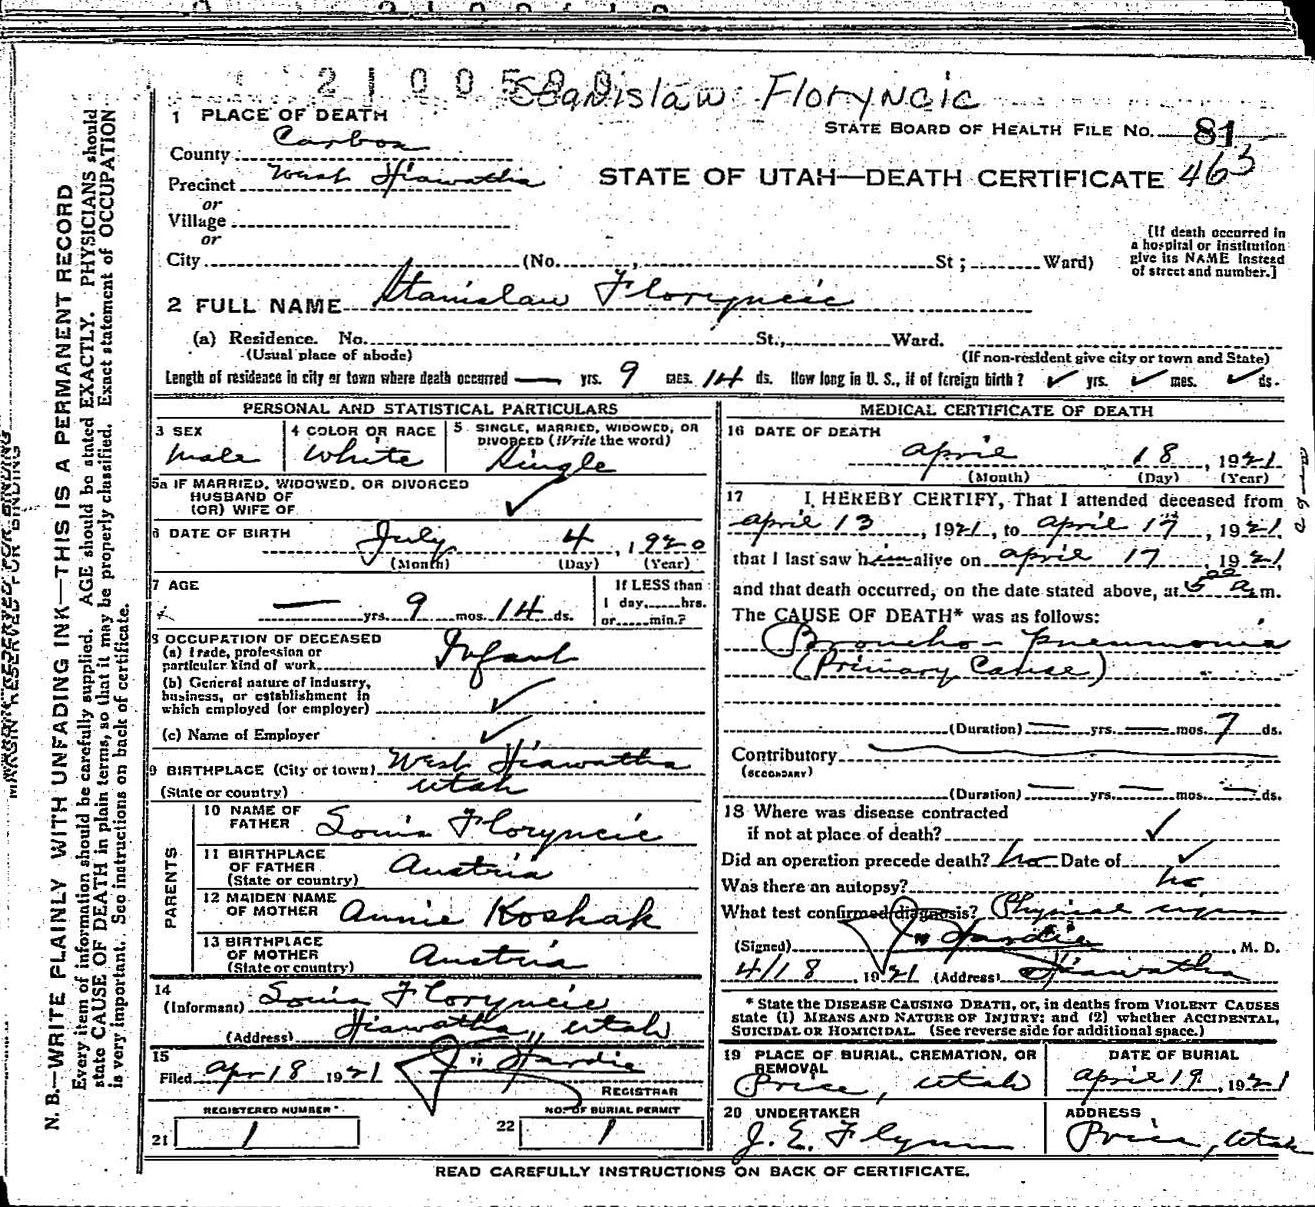 2100580
Stanislaw Floryncic
1 PLACE OF DEATH
STATE BOARD OF HEALTH FILE No. 81
County Carbon
463
Precinct West Hiawatha
STATE OF UTAH—DEATH CERTIFICATE
or
Village
or
City (No. , St ; Ward)
[If death occurred in
a hospital or institution
give its NAME instead
of street and number.]
2 FULL NAME Stanislaw Floryncic
(a) Residence. No. St., Ward.
(Usual place of abode)
(If non-resident give city or town and State)
Length of residence in city or town where death occurred — yrs. 9 mos. 14 ds. How long in U. S., if of foreign birth? ✓ yrs. ✓ mos. ✓ ds.
PERSONAL AND STATISTICAL PARTICULARS
3 SEX
Male
4 COLOR OR RACE
White
5 SINGLE, MARRIED, WIDOWED, OR
DIVORCED (Write the word)
Single
5a IF MARRIED, WIDOWED, OR DIVORCED
HUSBAND OF
(OR) WIFE OF ✓
6 DATE OF BIRTH July 4, 1920
(Month) (Day) (Year)
7 AGE
— yrs. 9 mos. 14 ds.
If LESS than
1 day, hrs.
or min.?
8 OCCUPATION OF DECEASED
(a) Trade, profession or
particular kind of work Infant
(b) General nature of industry,
business, or establishment in
which employed (or employer) ✓
(c) Name of Employer ✓
9 BIRTHPLACE (City or town) West Hiawatha
(State or country) Utah
PARENTS
10 NAME OF
FATHER Louis Floryncic
11 BIRTHPLACE
OF FATHER
(State or country) Austria
12 MAIDEN NAME
OF MOTHER Annie Koshak
13 BIRTHPLACE
OF MOTHER
(State or country) Austria
14
(Informant) Louis Floryncic
(Address) Hiawatha, Utah
15
Filed Apr 18 1921 J. W. Hardie
REGISTRAR
REGISTERED NUMBER
21 1
NO. OF BURIAL PERMIT
22 1
MEDICAL CERTIFICATE OF DEATH
16 DATE OF DEATH
April 18, 1921
(Month) (Day) (Year)
17 I HEREBY CERTIFY, That I attended deceased from
April 13, 1921, to April 17, 1921,
that I last saw him alive on April 17 1921,
and that death occurred, on the date stated above, at 5 00 a. m.
The CAUSE OF DEATH* was as follows:
Broncho-pneumonia
(Primary Cause)
(Duration) — yrs. — mos. 7 ds.
Contributory
(SECONDARY)
(Duration) — yrs. — mos. — ds.
18 Where was disease contracted
if not at place of death? ✓
Did an operation precede death? no Date of ✓
Was there an autopsy? no
What test confirmed diagnosis? Physical signs
(Signed) J. W. Hardie, M. D.
4/18, 1921 (Address) Hiawatha
* State the DISEASE CAUSING DEATH, or, in deaths from VIOLENT CAUSES
state (1) MEANS AND NATURE OF INJURY; and (2) whether ACCIDENTAL,
SUICIDAL OR HOMICIDAL. (See reverse side for additional space.)
19 PLACE OF BURIAL, CREMATION, OR
REMOVAL
Price, Utah
DATE OF BURIAL
April 19, 1921
20 UNDERTAKER
J. E. Flynn
ADDRESS
Price, Utah
READ CAREFULLY INSTRUCTIONS ON BACK OF CERTIFICATE.
MARGIN RESERVED FOR BINDING
N. B.—WRITE PLAINLY WITH UNFADING INK—THIS IS A PERMANENT RECORD
Every item of information should be carefully supplied. AGE should be stated EXACTLY. PHYSICIANS should
state CAUSE OF DEATH in plain terms, so that it may be properly classified. Exact statement of OCCUPATION
is very important. See instructions on back of certificate.